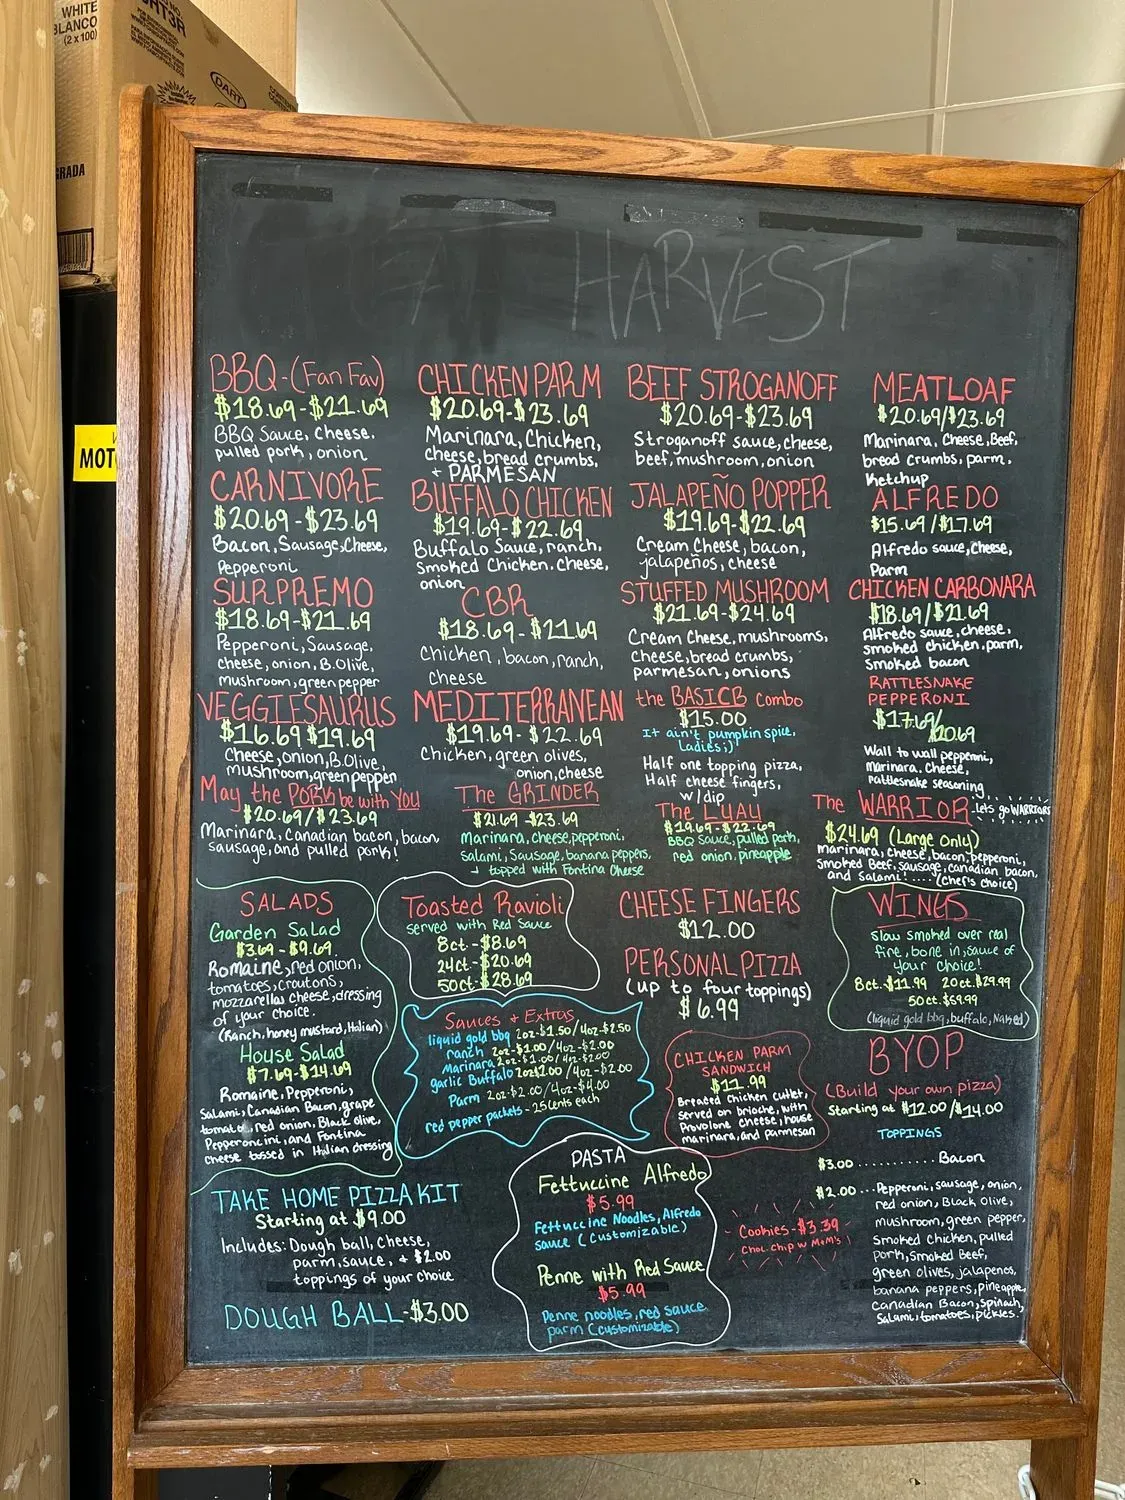 WHITE
BLANCO
(2 x 100)
DART
GRADA
MOT
EAT HARVEST
BBQ-(Fan Fav)
$18.69-$21.69
BBQ Sauce, Cheese,
pulled pork, onion
CARNIVORE
$20.69-$23.69
Bacon, Sausage, Cheese,
Pepperoni
SURPREMO
$18.69-$21.69
Pepperoni, Sausage,
cheese, onion, B.Olive,
mushroom, green pepper
VEGGIESAURUS
$16.69 $19.69
Cheese, onion, B.Olive,
mushroom, green pepper
May the PORK be with YOU
$20.69/$23.69
Marinara, Canadian bacon, bacon,
sausage, and pulled pork!
CHICKEN PARM
$20.69-$23.69
Marinara, Chicken,
cheese, bread crumbs,
+ PARMESAN
BUFFALO CHICKEN
$19.69-$22.69
Buffalo Sauce, ranch,
Smoked Chicken, Cheese,
onion
CBR
$18.69-$21.69
Chicken, bacon, ranch,
cheese
MEDITERRANEAN
$19.69-$22.69
Chicken, green olives,
onion, cheese
The GRINDER
$21.69-$23.69
Marinara, cheese, pepperoni,
salami, Sausage, banana peppers,
+ topped with Fontina Cheese
BEEF STROGANOFF
$20.69-$23.69
Stroganoff sauce, cheese,
beef, mushroom, onion
JALAPEÑO POPPER
$19.69-$22.69
Cream Cheese, bacon,
jalapeños, cheese
STUFFED MUSHROOM
$21.69-$24.69
Cream Cheese, mushrooms,
Cheese, bread crumbs,
parmesan, onions
the BASICB combo
$15.00
It ain't pumpkin spice,
Ladies;)
Half one topping pizza,
Half cheese fingers,
w/dip
The LUAU
$19.69-$22.69
BBQ sauce, pulled pork,
red onion, pineapple
MEATLOAF
$20.69/$23.69
Marinara, Cheese, Beef,
bread crumbs, parm,
Ketchup
ALFREDO
$15.69/$17.69
Alfredo sauce, Cheese,
Parm
CHICKEN CARBONARA
$18.69/$21.69
Alfredo sauce, cheese,
smoked chicken, parm,
smoked bacon
RATTLESNAKE
PEPPERONI
$17.69/20.69
Wall to wall pepperoni,
Marinara, Cheese,
rattlesnake seasoning
The WARRIOR lets go WARRIORS
$24.69 (Large Only)
marinara, cheese, bacon, pepperoni,
smoked Beef, sausage, canadian bacon,
and Salami!.... (chef's choice)
SALADS
Garden Salad
$3.69-$9.69
Romaine, red onion,
tomatoes, croutons,
mozzarella cheese, dressing
of your choice.
(Ranch, honey mustard, Italian)
House Salad
$7.69-$14.69
Romaine, Pepperoni,
Salami, Canadian Bacon, grape
tomato, red onion, Black olive,
Pepperoncini, and Fontina
cheese tossed in Italian dressing
Toasted Ravioli
served with Red Sauce
8ct.-$8.69
24ct-$20.69
50ct-$28.69
Sauces + Extras
liquid gold bbq 2oz-$1.50/4oz-$2.50
ranch 2oz-$1.00/4oz-$2.00
Marinara 2oz-$1.00/4oz-$2.00
garlic Buffalo 2oz$1.00/4oz-$2.00
Parm 2oz-$2.00/4oz-$4.00
red pepper packets-25cents each
CHEESE FINGERS
$12.00
PERSONAL PIZZA
(up to four toppings)
$6.99
CHICKEN PARM
SANDWICH
$11.99
Breaded Chicken cutlet,
served on brioche, with
Provolone cheese, house
marinara, and parmesan
WINGS
Slow smoked over real
fire, bone in, sauce of
your choice!
8ct.-$11.99 20ct.$29.99
50ct.$59.99
(liquid gold bbq, buffalo, Naked)
BYOP
(Build your own pizza)
Starting at $12.00/$14.00
TOPPINGS
$3.00.......... Bacon
$2.00...Pepperoni, sausage, onion,
red onion, Black Olive,
mushroom, green pepper,
smoked chicken, pulled
pork, smoked Beef,
green olives, jalapenos,
banana peppers, pineapple,
Canadian Bacon, Spinach,
Salami, tomatoes, pickles.
TAKE HOME PIZZA KIT
Starting at $9.00
Includes: Dough ball, cheese,
parm, sauce, + $2.00
toppings of your choice
DOUGH BALL-$3.00
PASTA
Fettuccine Alfredo
$5.99
Fettuccine Noodles, Alfredo
sauce (Customizable)
Penne with Red Sauce
$5.99
Penne noodles, red sauce
parm (customizable)
Cookies-$3.39
Choc. chip w M&M's